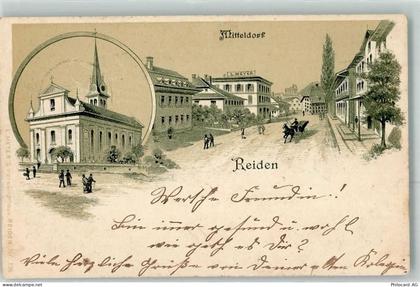 Mitteldorf
L. MEYER
Reiden
Werthe Freundin!
Bin immer gesund u. wohl
wie geht es Dir?
Viele herzliche Grüße von Deiner alten Kollegin